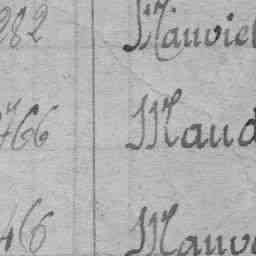 282 Mauviel
766 Maud
466 Mauv